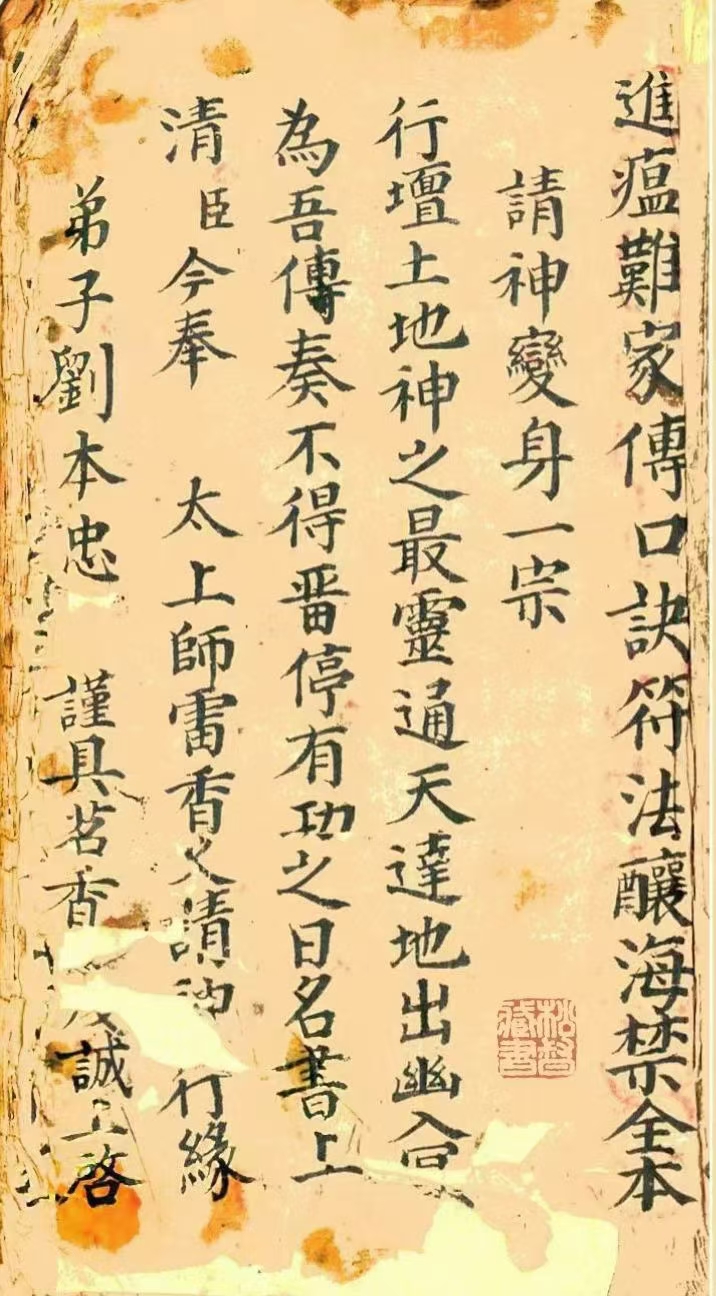 進瘟難家傳口訣符法釀海禁全本
請神變身一宗
行壇土地神之最靈通天達地出幽入
為吾傳奏不得畱停有功之日名書上
清臣今奉 太上師雷香火請神 行緣
弟子劉本忠 謹具茗香 誠上啓
藏書